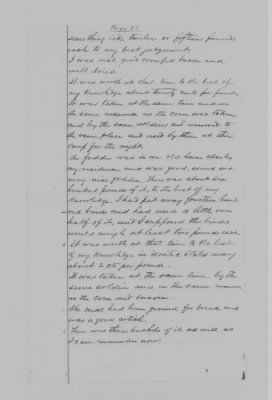 Page 25
something like twelve or fifteen pounds
each to my best judgement.
I was real good corn fed bacon and
well dried.
It was worth at that time to the best of
my knowledge about twenty cents per pound.
It was taken at the same time and in
the same manner as the corn was taken,
and by the same soldiers and removed to
the same place and used by them at their
camp for the night.
The fodder was in an old house close by
my residence and was good, sound and
very nice fodder. There was about six
hundred pounds of it, to the best of my
Knowledge I had put away fourteen hund
red binds and had used a little over
half of it and I suppose the binds
would weigh at least two pounds each.
It was worth at that time to the best
of my Knowledge in United States money
about 2 cts per pound.
It was taken at the same time, by the
same soldiers and in the same manner
as the corn and bacon.
The meal had been ground for bread and
was a good article.
There was three bushels of it as well as
I can remember now.